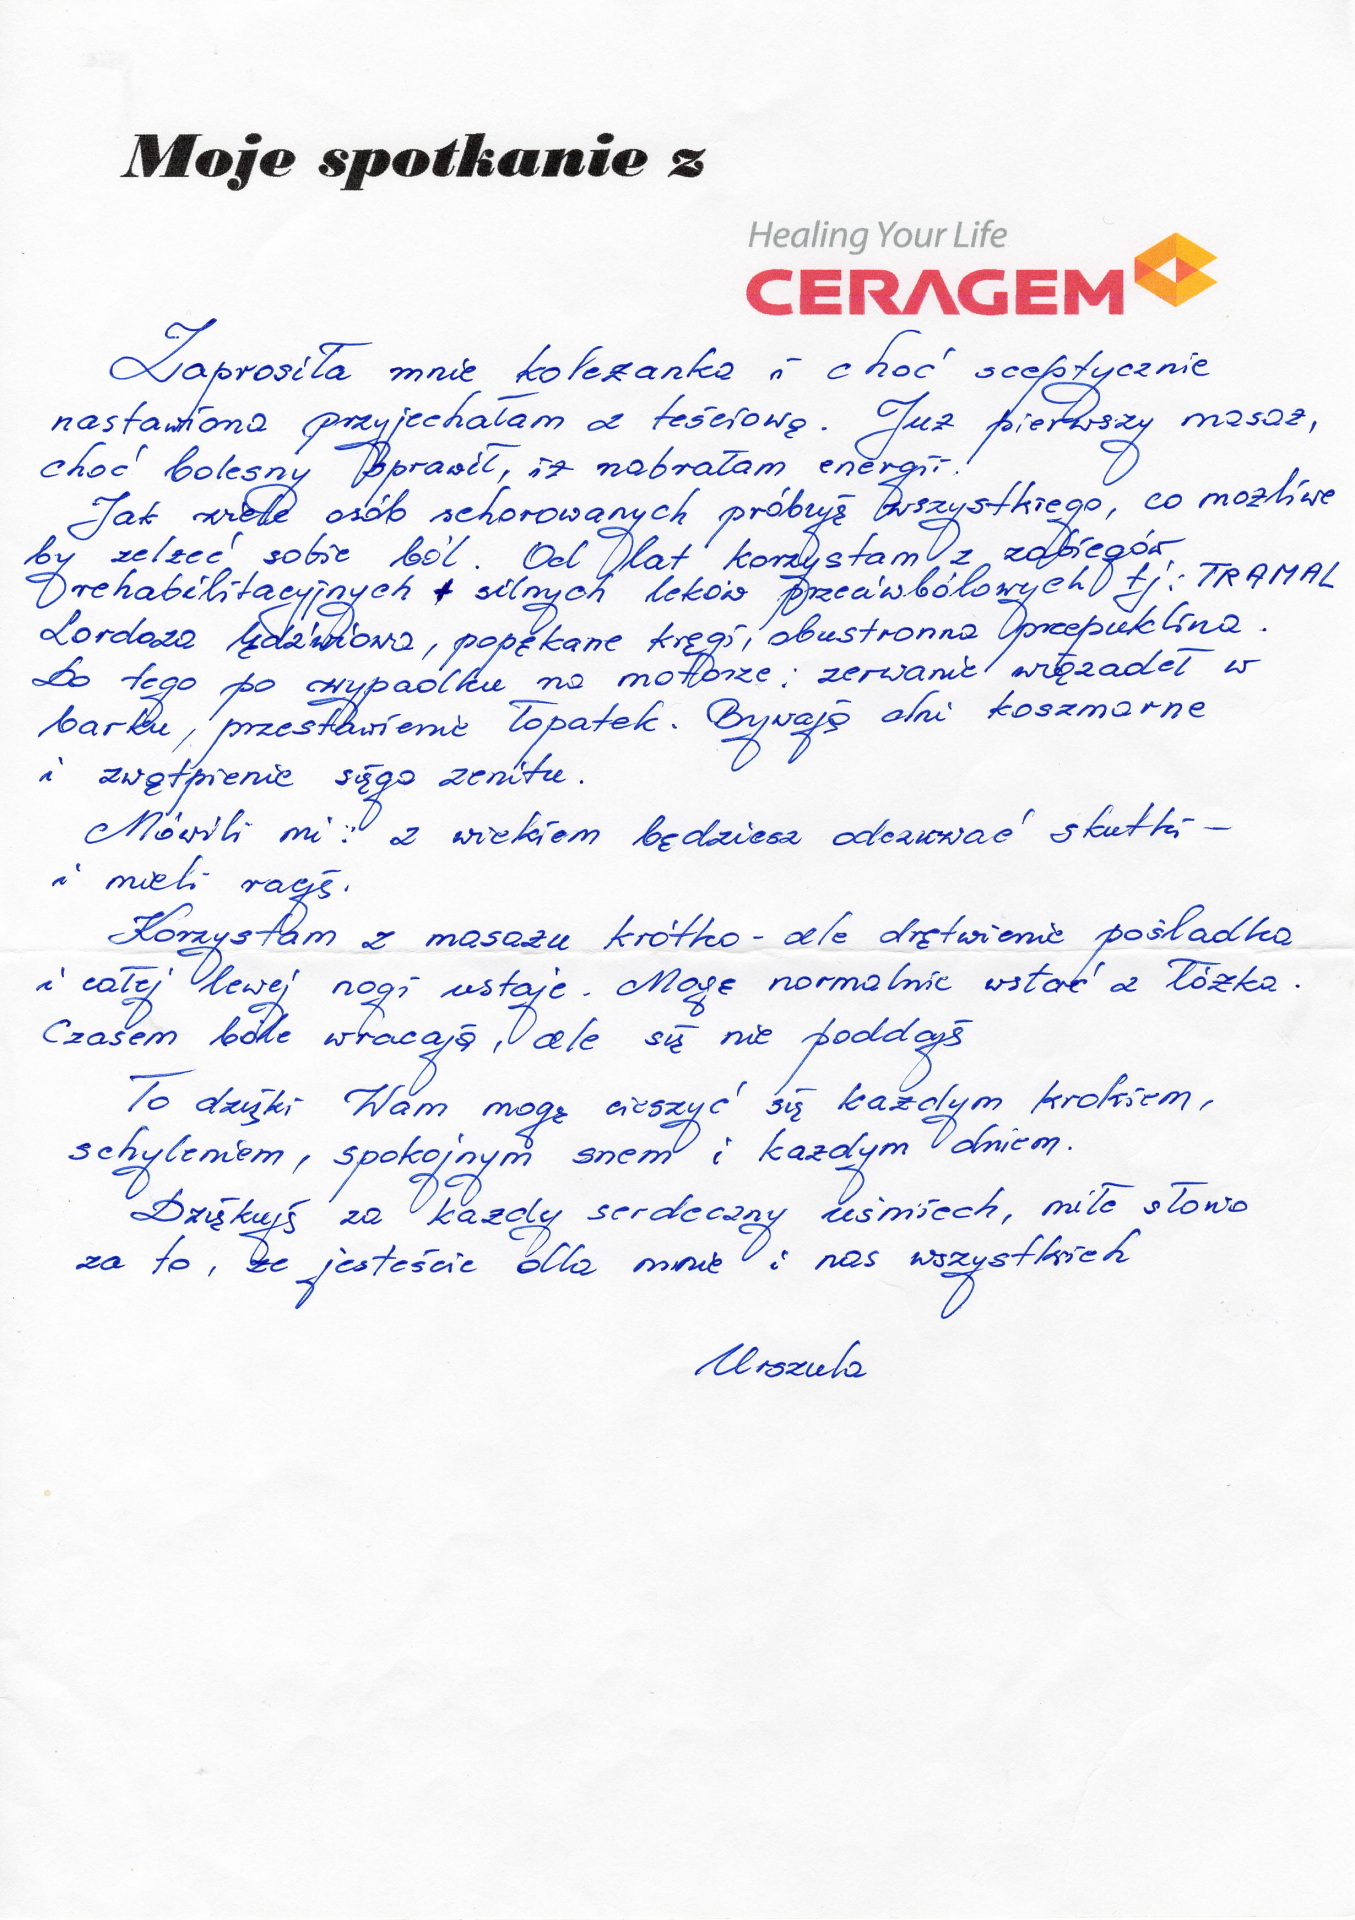 Moje spotkanie z
Healing Your Life
CERAGEM
Zaprosiła mnie koleżanka i choć sceptycznie
nastawiona przyjechałam z teściową. Już pierwszy masaż,
choć bolesny sprawił, iż nabrałam energii.
Jak wiele osób schorowanych próbuję wszystkiego, co możliwe
by zelżeć sobie ból. Od lat korzystam z zabiegów
rehabilitacyjnych + silnych leków przeciwbólowych tj: TRAMAL
Lordoza lędźwiowa, popękane kręgi, obustronna przepuklina.
Do tego po wypadku na motorze: zerwanie więzadeł w
barku, przestawienie łopatek. Bywają dni koszmarne
i zwątpienie sięga zenitu.
Mówili mi: z wiekiem będziesz odczuwać skutki –
i mieli rację.
Korzystam z masażu krótko - ale drętwienie pośladka
i całej lewej nogi ustaje. Mogę normalnie wstać z łóżka.
Czasem bóle wracają, ale się nie poddaję
To dzięki Wam mogę cieszyć się każdym krokiem,
schyleniem, spokojnym snem i każdym dniem.
Dziękuję za każdy serdeczny uśmiech, miłe słowo
za to, że jesteście dla mnie i nas wszystkich
Urszula